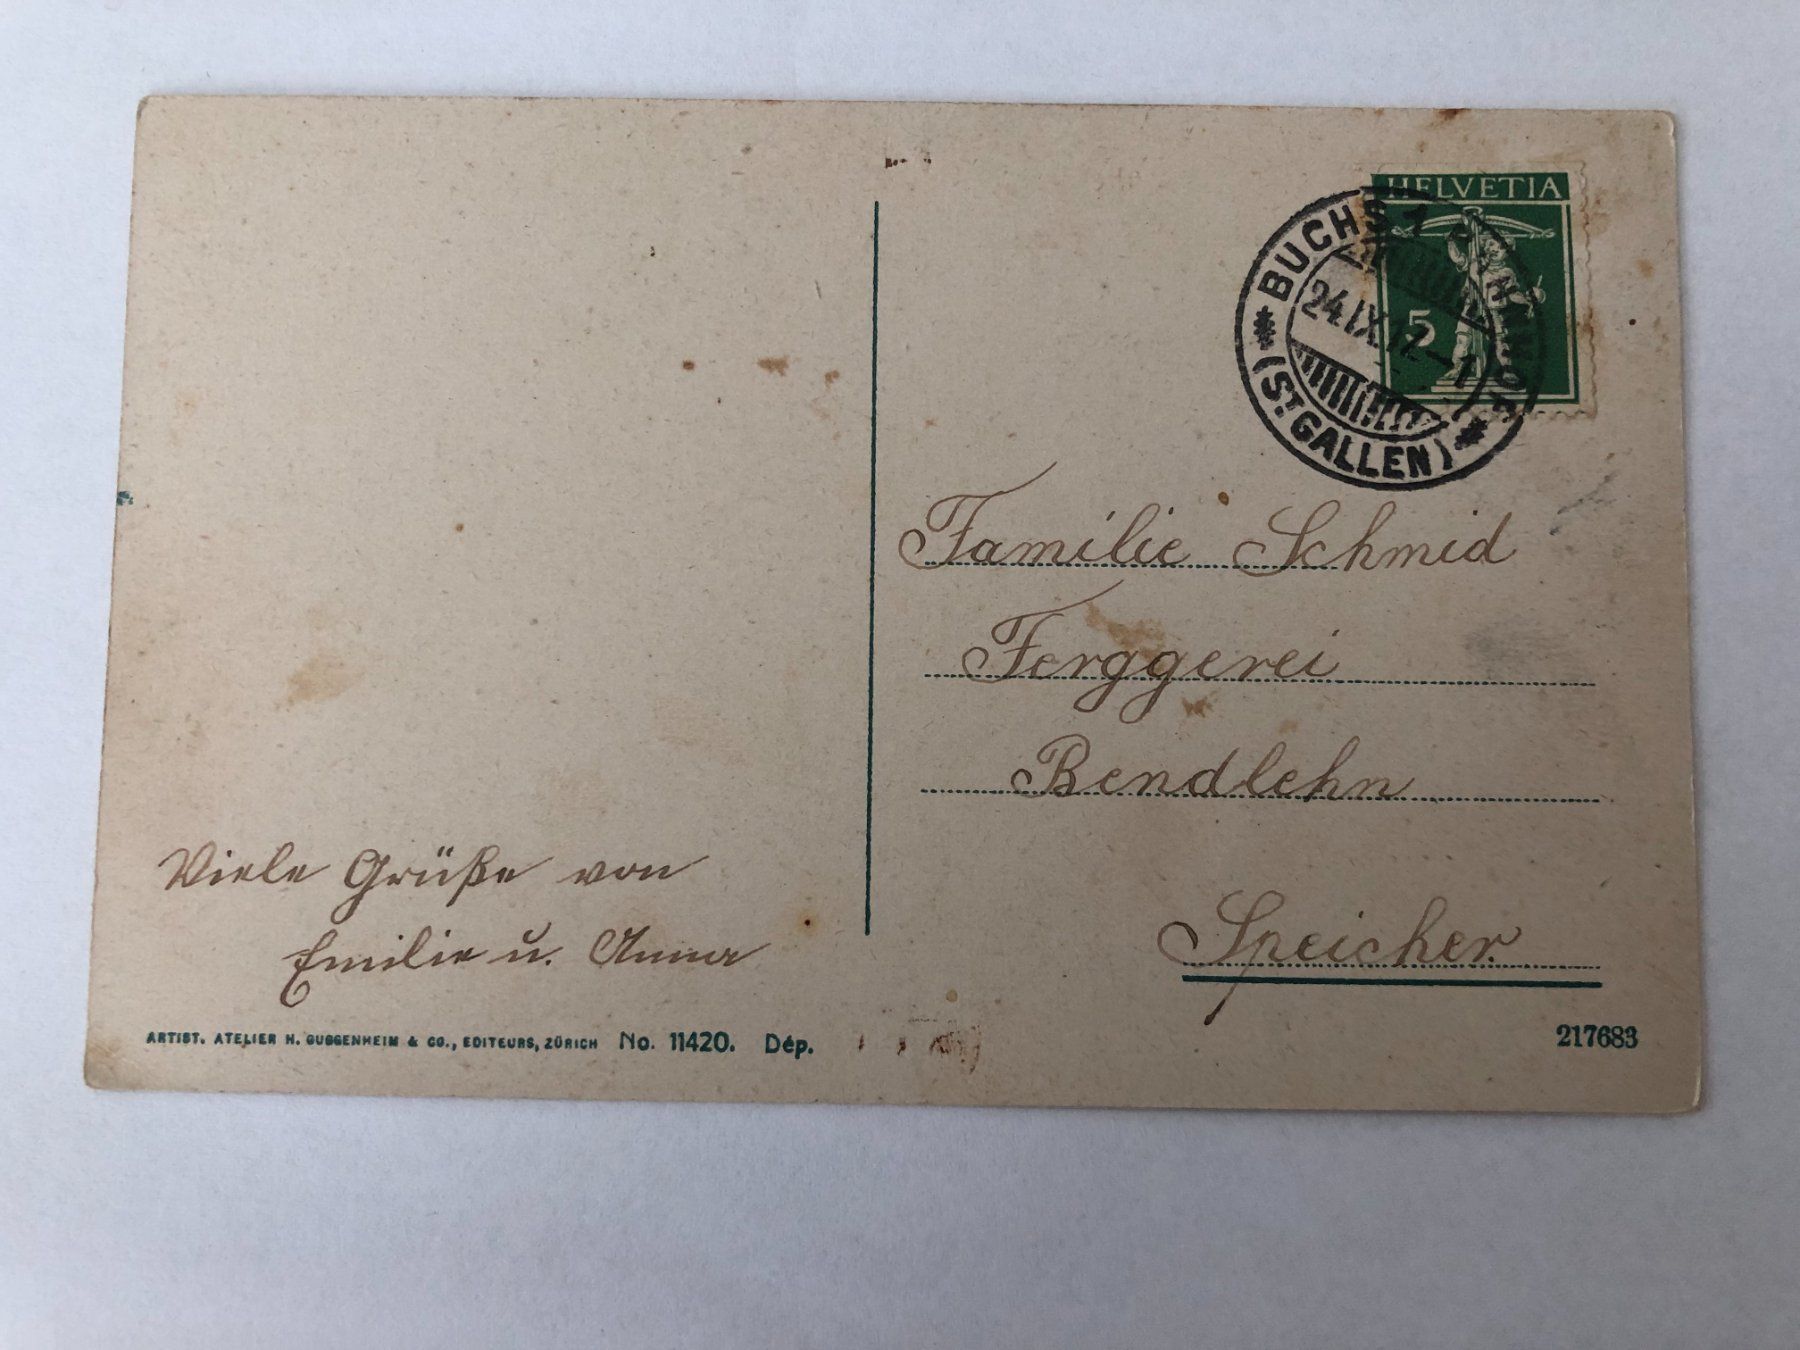 HELVETIA
5
BUCHS 1
24.IX.12–1
(ST. GALLEN)
Familie Schmid
Ferggerei
Bendlehn
Speicher.
Viele Grüße von
Emilie u. Anna
ARTIST. ATELIER H. GUGGENHEIM & CO., EDITEURS, ZÜRICH No. 11420. Dép.
217683